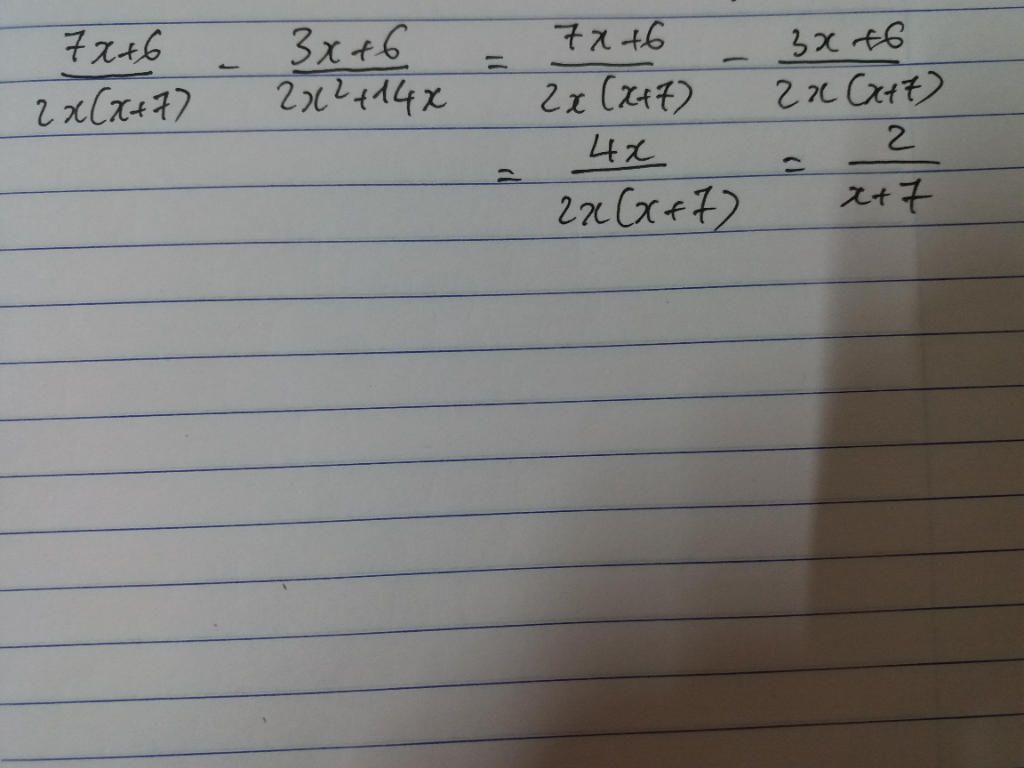 7x+6/2x(x+7) - 3x+6/2x²+14x = 7x+6/2x(x+7) - 3x+6/2x(x+7)
= 4x/2x(x+7) = 2/x+7